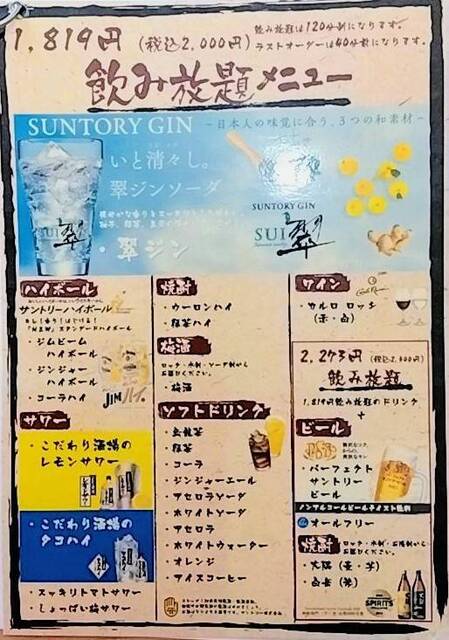 1,819円 (税込2,000円)
飲み放題は120分制になります。
ラストオーダーは40分前になります。
飲み放題メニュー
SUNTORY GIN
-日本人の味覚に合う、3つの和素材-
いと清々し。
翠ジンソーダ
SUI 翠
・翠ジン
SUNTORY GIN
SUI 翠
ハイボール
サントリーハイボール
・ジムビーム
ハイボール
・ジンジャー
ハイボール
・コーラハイ
サワー
・こだわり酒場の
レモンサワー
・こだわり酒場の
タコハイ
・スッキリトマトサワー
・しょっぱい梅サワー
焼酎
・ウーロンハイ
・緑茶ハイ
梅酒
・梅酒
ソフトドリンク
・烏龍茶
・緑茶
・コーラ
・ジンジャーエール
・アセロラソーダ
・ホワイトソーダ
・アセロラ
・ホワイトウォーター
・オレンジ
・アイスコーヒー
ワイン
・カルロ ロッシ
(赤・白)
2,273円
飲み放題
1,819円飲み放題のドリンク
+
ビール
・パーフェクト
サントリー
ビール
ノンアルコールビールテイスト飲料
オールフリー
焼酎
・大隅 (麦・芋)
SPIRITS